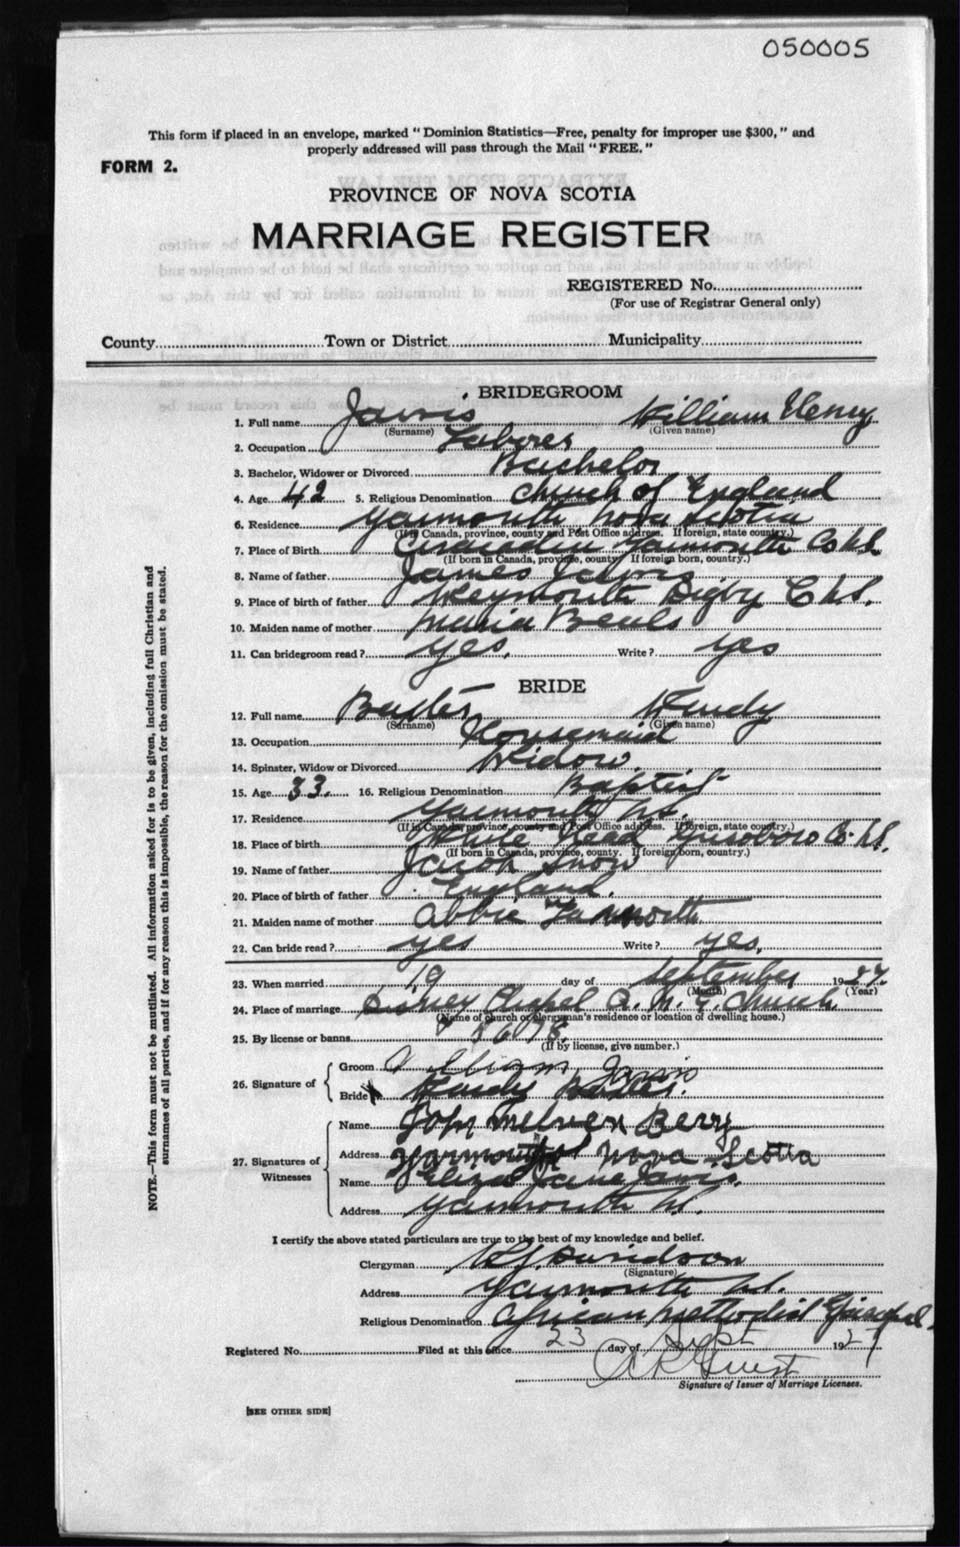 050005
This form if placed in an envelope, marked "Dominion Statistics—Free, penalty for improper use $300," and
properly addressed will pass through the Mail "FREE."
FORM 2.
PROVINCE OF NOVA SCOTIA
MARRIAGE REGISTER
REGISTERED No.
(For use of Registrar General only)
County Town or District Municipality
BRIDEGROOM
1. Full name Jarvis William Henry
(Surname) (Given name)
2. Occupation Laborer
3. Bachelor, Widower or Divorced Bachelor
4. Age 42 5. Religious Denomination Church of England
6. Residence Yarmouth Nova Scotia
(If in Canada, province, county and Post Office address. If foreign, state country.)
7. Place of Birth Yarmouth Co N.S.
(If born in Canada, province, county. If foreign born, country.)
8. Name of father James Jarvis
9. Place of birth of father Weymouth Digby C N.S.
10. Maiden name of mother Maria Beals
11. Can bridegroom read? yes. Write? yes
BRIDE
12. Full name Baxter
(Surname) (Given name)
13. Occupation Housemaid
14. Spinster, Widow or Divorced Widow.
15. Age 33. 16. Religious Denomination Baptist
17. Residence Yarmouth N.S.
(If in Canada, province, county and Post Office address. If foreign, state country.)
18. Place of birth Co. N.S.
(If born in Canada, province, county. If foreign born, country.)
19. Name of father Snow
20. Place of birth of father England.
21. Maiden name of mother Abbie
22. Can bride read? yes Write? yes.
23. When married 19 day of September 1927.
(Month) (Year)
24. Place of marriage Chapel A. M. E. Church.
(Name of church or clergyman's residence or location of dwelling house.)
25. By license or banns
(If by license, give number.)
26. Signature of Groom William Jarvis
Bride Baxter.
27. Signatures of Witnesses Name John Berry
Address Yarmouth Nova Scotia
Name Eliza Jane Jarvis.
Address Yarmouth N.S.
I certify the above stated particulars are true to the best of my knowledge and belief.
Clergyman Davidson
(Signature)
Address Yarmouth N.S.
Religious Denomination African Methodist Episcopal.
Registered No. Filed at this office 23 day of Sept 1927
Signature of Issuer of Marriage Licenses.
[SEE OTHER SIDE]
NOTE.—This form must not be mutilated. All information asked for is to be given, including full Christian and
surnames of all parties, and if for any reason this is impossible, the reason for the omission must be stated.